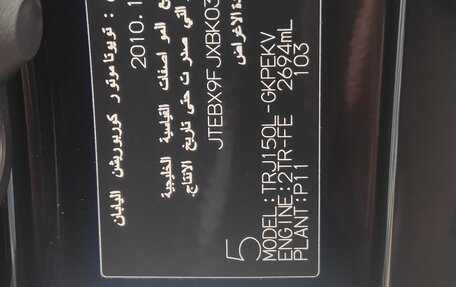 : تويوتا موتور كوربوريشن اليابان
2010.1
ع المواصفات القياسية الخليجية
التي صدرت حتى تاريخ الانتاج.
JTEBX9FJXBK03
ة الاغراض
5
MODEL:TRJ150L-GKPEKV
ENGINE:2TR-FE 2694mL
PLANT:P11 103